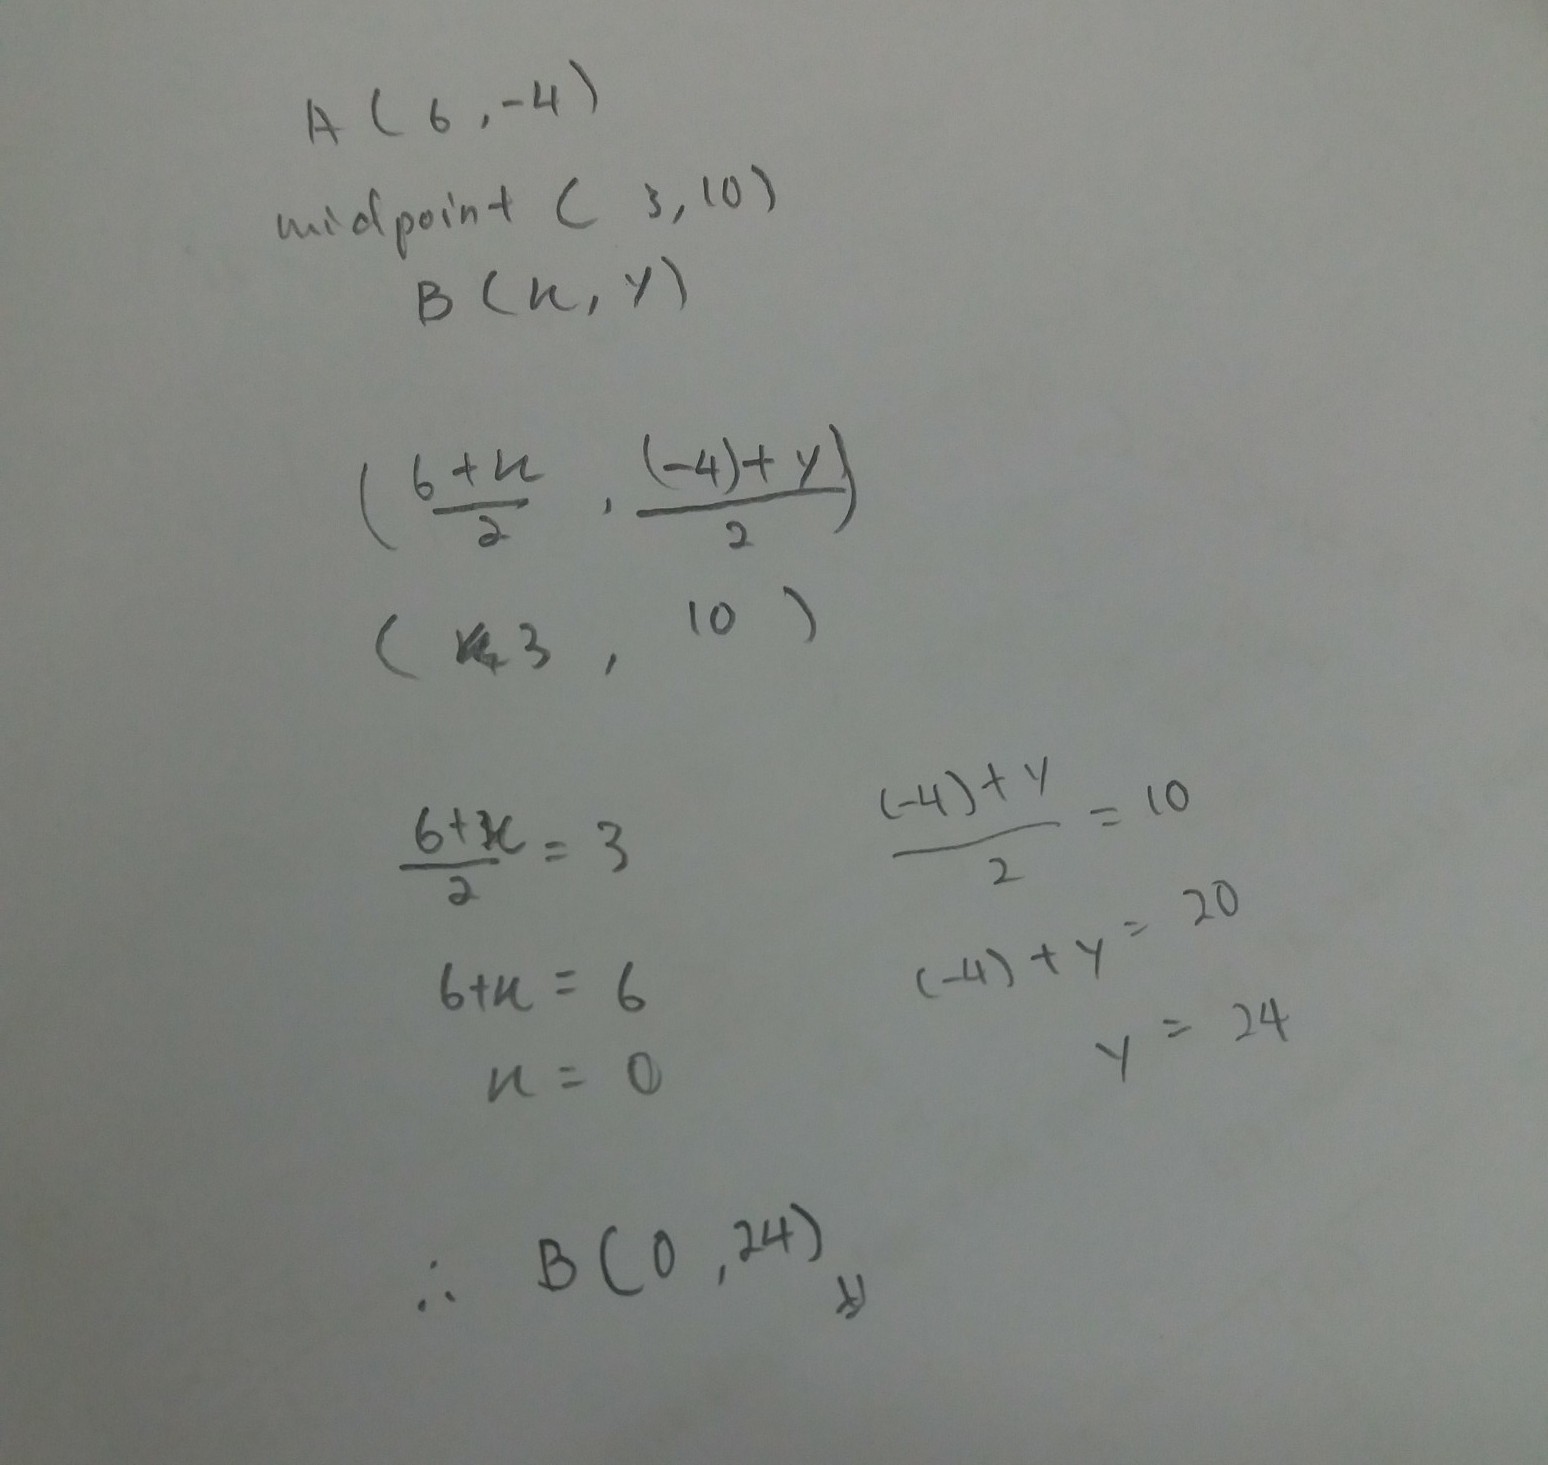 A (6, -4)
midpoint (3, 10)
B (x, y)
(6+x/2, (-4)+y/2)
(3, 10)
6+x/2 = 3
6+x = 6
x = 0
(-4)+y/2 = 10
(-4)+y = 20
y = 24
∴ B(0, 24)